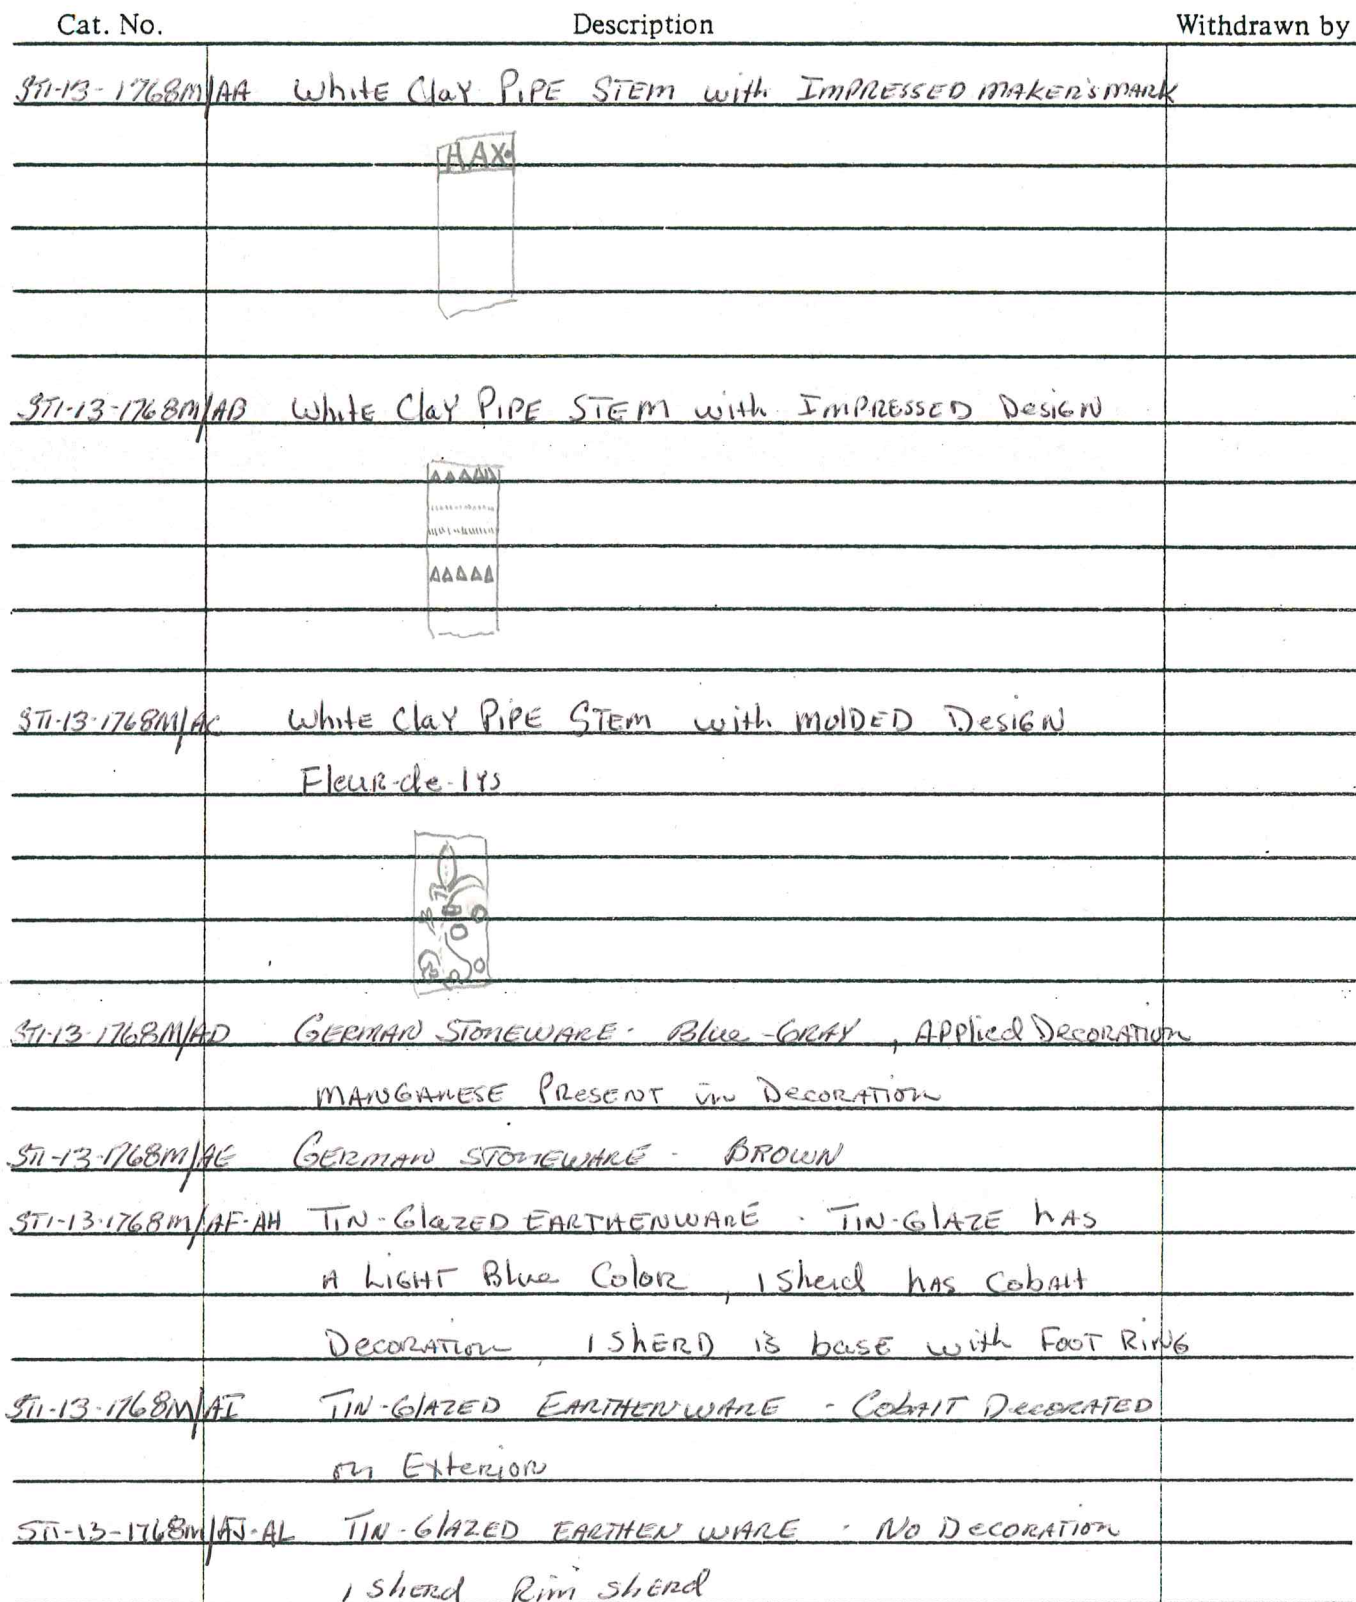 Cat. No. Description Withdrawn by
ST1-13-1768M/AA White Clay PIPE STEM with IMPRESSED MAKER'S MARK
HAX
ST1-13-1768M/AB White Clay PIPE STEM with IMPRESSED Design
ST1-13-1768M/AC White Clay PIPE STEM with MOLDED Design
Fleur-de-lys
ST1-13-1768M/AD GERMAN STONEWARE - Blue-GRAY, Applied Decoration
MANGANESE Present in Decoration
ST1-13-1768M/AE GERMAN STONEWARE - BROWN
ST1-13-1768M/AF-AH TIN-Glazed EARTHENWARE - TIN-GlAZE hAS
A LIGHT Blue Color, 1 Sherd hAS Cobalt
Decoration, 1 SHERD is base with FOOT RING
ST1-13-1768M/AI TIN-GlAZED EARTHENWARE - CobAlT DecoRATED
on Exterior
ST1-13-1768M/AJ-AL TIN-GlAZED EARTHEN WARE - No Decoration
1 Sherd Rim Sherd